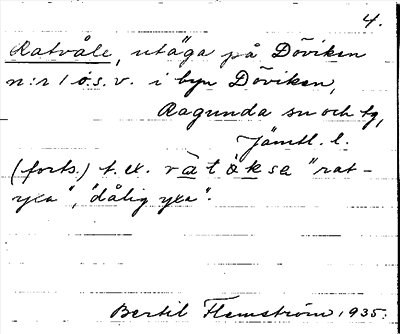 4.
Ratvåle, utäga på Döviken
n:r 1 o.s.v. i byn Döviken,
Ragunda sn och tg,
Jämtl. l.
(forts.) t. ex. ràtöksa "rat-
yxa", "dålig yxa".
Bertil Flemström 1935.